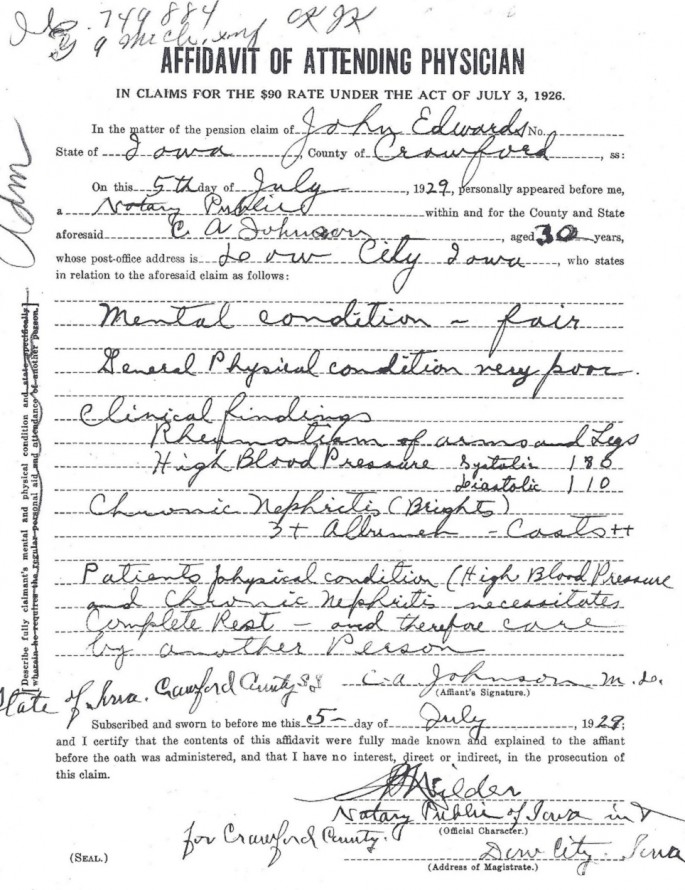 No. 749884 OK JK
G 9 Mich. Inf
AFFIDAVIT OF ATTENDING PHYSICIAN
IN CLAIMS FOR THE $90 RATE UNDER THE ACT OF JULY 3, 1926.
In the matter of the pension claim of John Edwards No.
State of Iowa, County of Crawford, ss:
On this 5th day of July, 1929, personally appeared before me,
a Notary Public within and for the County and State
aforesaid C A Johnson, aged 30 years,
whose post-office address is Dow City Iowa, who states
in relation to the aforesaid claim as follows:
Adm
[Describe fully claimant's mental and physical condition and state specifically
wherein he requires the regular personal aid and attendance of another person.]
Mental condition - fair
General Physical condition very poor.
Clinical findings
Rheumatism of arms and Legs
High Blood Pressure Systolic 186
Diastolic 110
Chronic Nephritis (Brights)
3+ Albumen - Casts ++
Patients physical condition (High Blood Pressure
and Chronic Nephritis necessitates
Complete Rest - and therefore care
by another Person
C.A. Johnson M.D.
(Affiant's Signature.)
State of Iowa. Crawford County SS
Subscribed and sworn to before me this 5- day of July, 1929;
and I certify that the contents of this affidavit were fully made known and explained to the affiant
before the oath was administered, and that I have no interest, direct or indirect, in the prosecution of
this claim.
Notary Public of Iowa in &
(Official Character.)
for Crawford County.
Dow City. Iowa
(SEAL.)
(Address of Magistrate.)